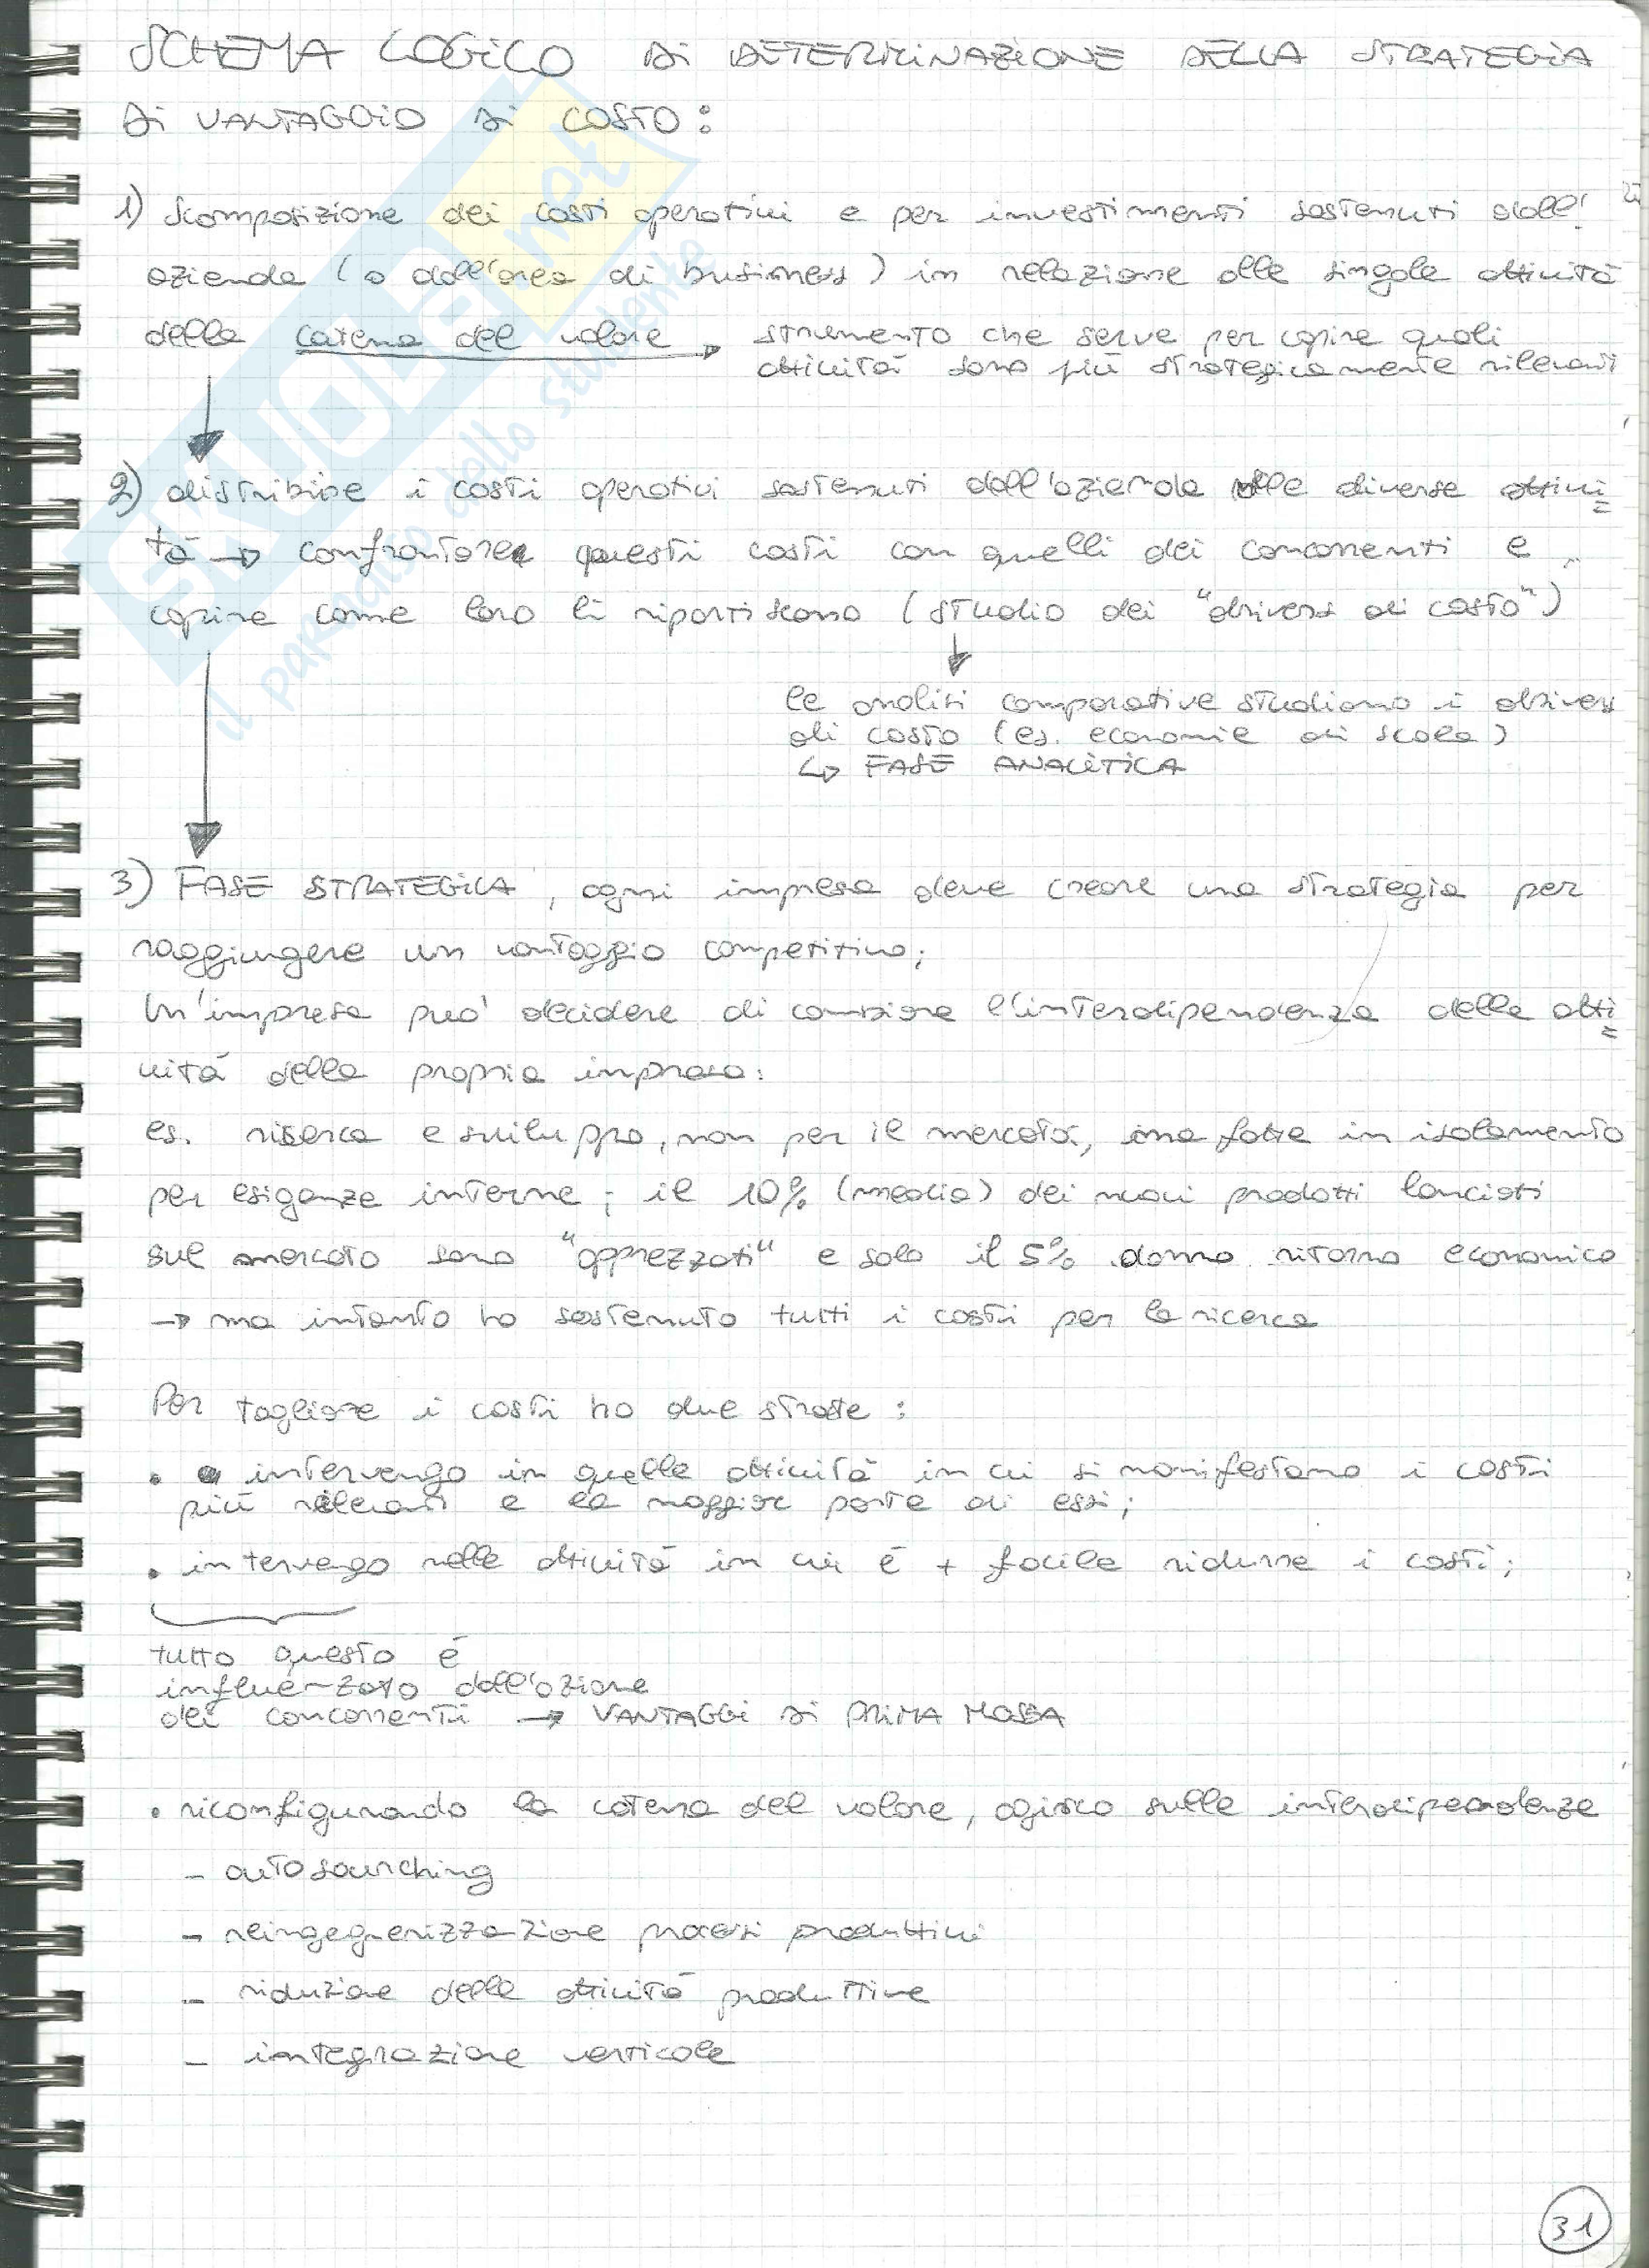 SCHEMA LOGICO DI DETERMINAZIONE DELLA STRATEGIA
DI VANTAGGIO DI COSTO:
1) Scomposizione dei costi operativi e per investimenti sostenuti dall'
azienda (o dall'area di business) in relazione alle singole attività
della catena del valore → strumento che serve per capire quali
attività sono più strategicamente rilevanti
2) distribuire i costi operativi sostenuti dall'azienda alle diverse attivi=
tà → confrontare questi costi con quelli dei concorrenti e
capire come loro li ripartiscono (studio dei "drivers di costo")
le analisi comparative studiano i drivers
di costo (es. economie di scala)
↳ FASE ANALITICA
3) FASE STRATEGICA, ogni impresa deve creare una strategia per
raggiungere un vantaggio competitivo;
Un'impresa può decidere di cambiare l'interdipendenza delle atti=
vità della propria impresa:
es. ricerca e sviluppo, non per il mercato, ma fatte in isolamento
per esigenze interne; il 10% (media) dei nuovi prodotti lanciati
sul mercato sono "apprezzati" e solo il 5% danno ritorno economico
→ ma intanto ho sostenuto tutti i costi per la ricerca
Per tagliare i costi ho due strade:
• intervengo in quelle attività in cui si manifestano i costi
più rilevanti e la maggior parte di essi;
• intervengo nelle attività in cui è + facile ridurre i costi;
tutto questo è
influenzato dall'azione
dei concorrenti → VANTAGGI DI PRIMA MOSSA
• riconfigurando la catena del valore, agisco sulle interdipendenze
- autosourching
- reingegnerizzazione processi produttivi
- riduzione delle attività produttive
- integrazione verticale
31
SKUOLA.net
il paradiso dello studente